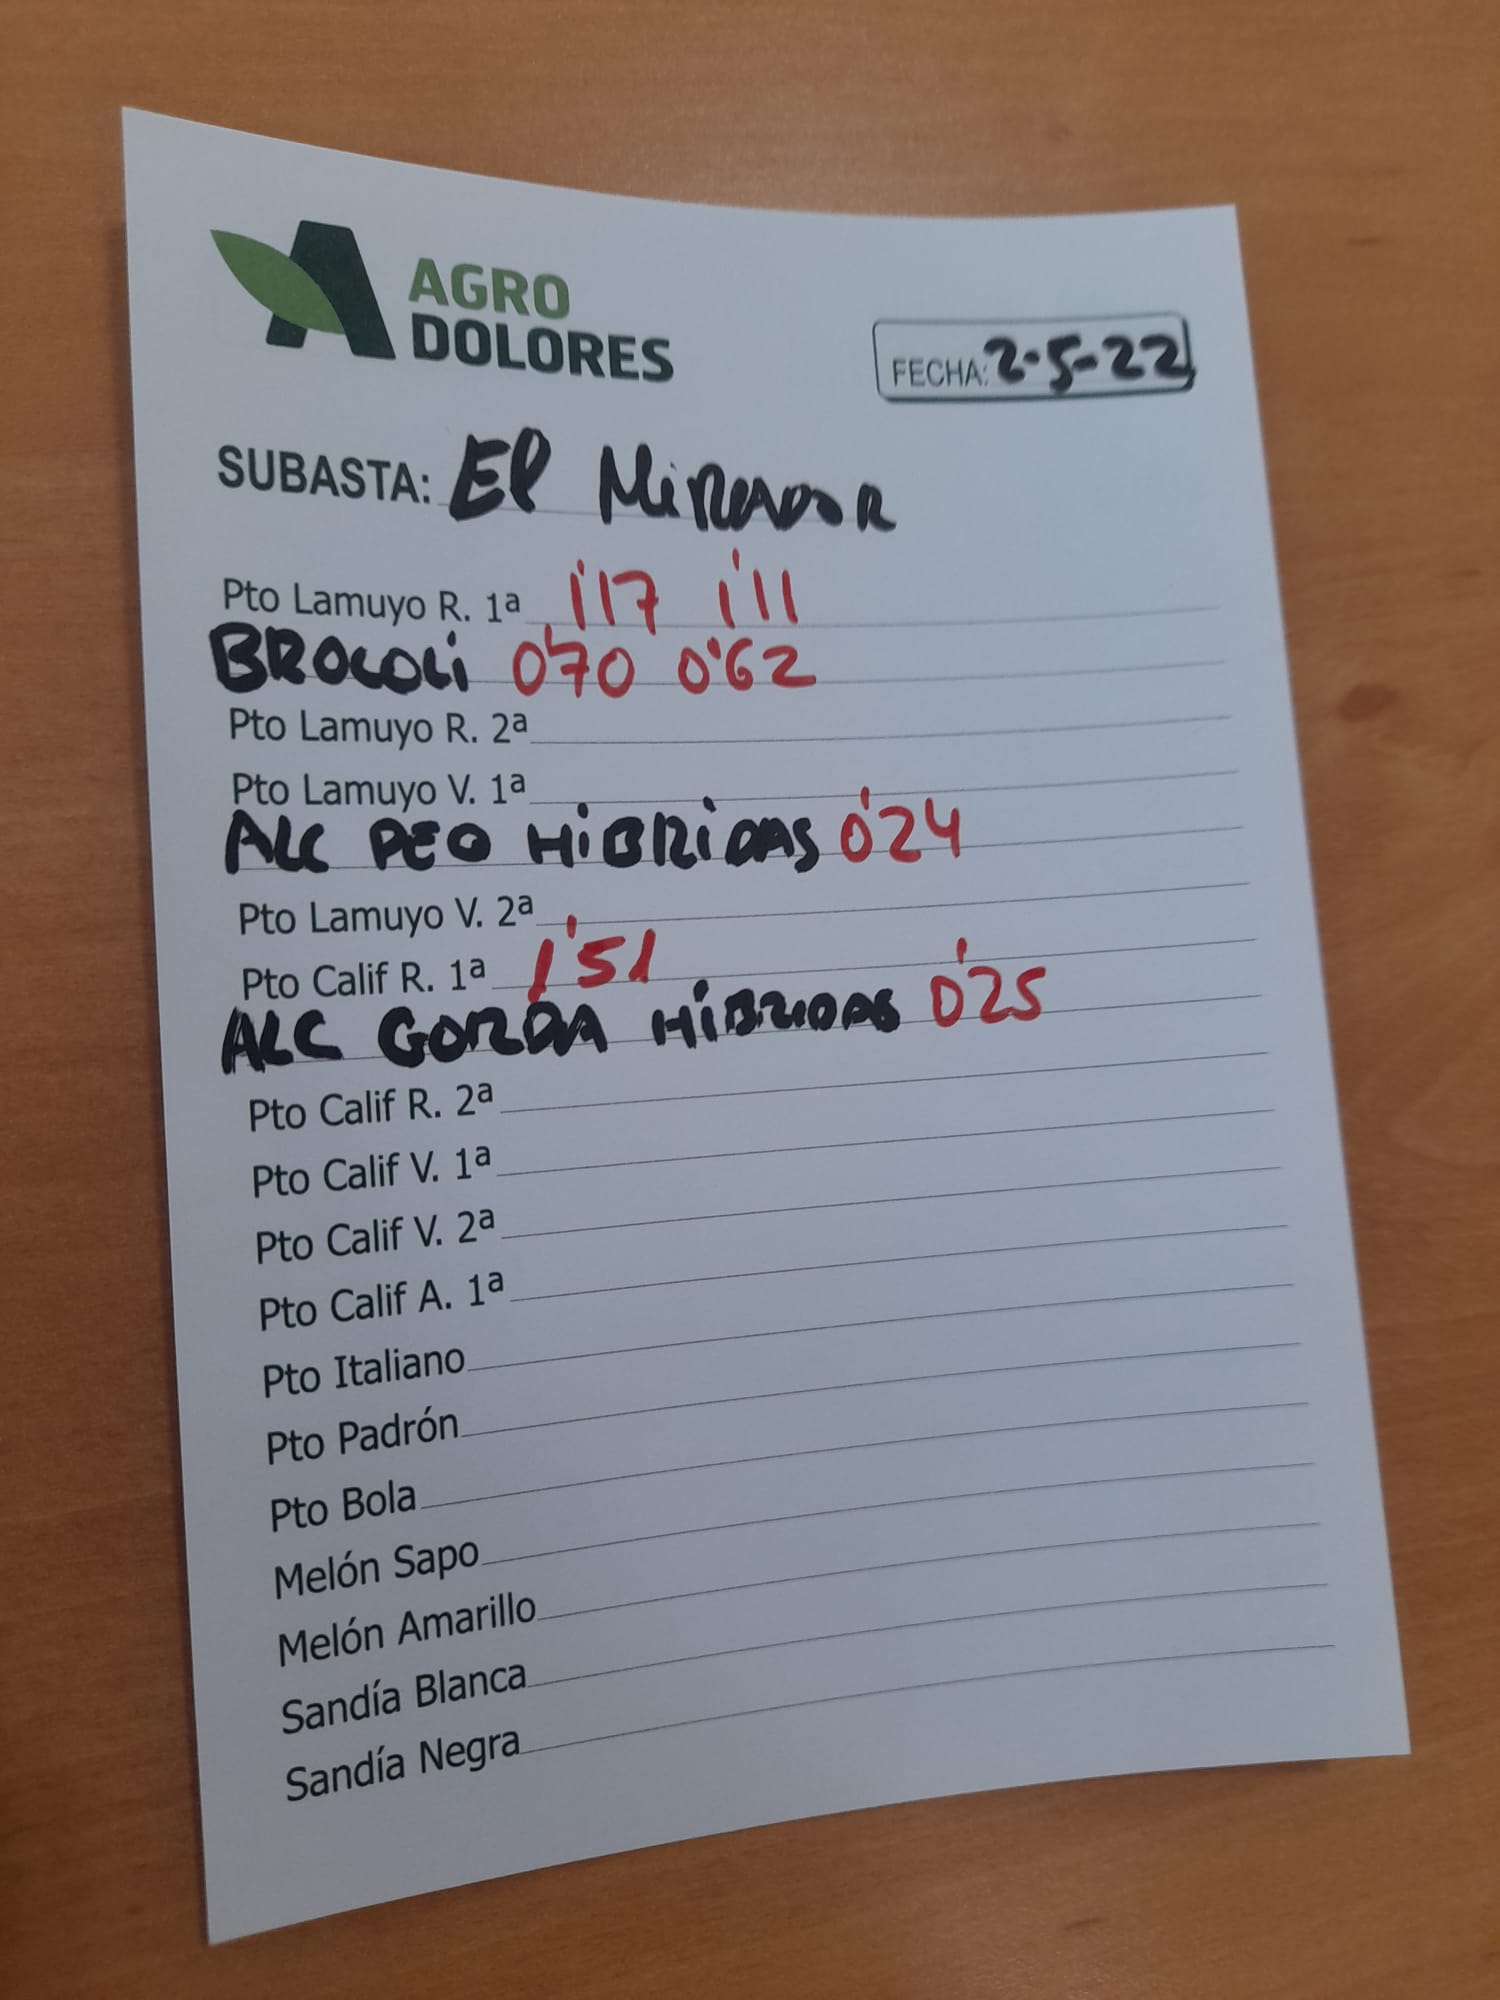 AGRO
DOLORES
FECHA: 2-5-22
SUBASTA: El MiRADOR
Pto Lamuyo R. 1ª 1'17 1'11
BROCOLi 0'70 0'62
Pto Lamuyo R. 2ª
Pto Lamuyo V. 1ª
ALC PEQ HiBRiDAS 0'24
Pto Lamuyo V. 2ª
Pto Calif R. 1ª 1'51
ALC GORDA HiBRIDAS 0'25
Pto Calif R. 2ª
Pto Calif V. 1ª
Pto Calif V. 2ª
Pto Calif A. 1ª
Pto Italiano
Pto Padrón
Pto Bola
Melón Sapo
Melón Amarillo
Sandía Blanca
Sandía Negra